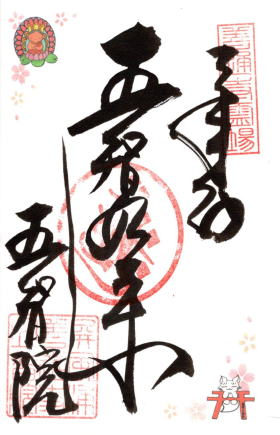 善通寺霊場
奉拝
五智如来
五智院